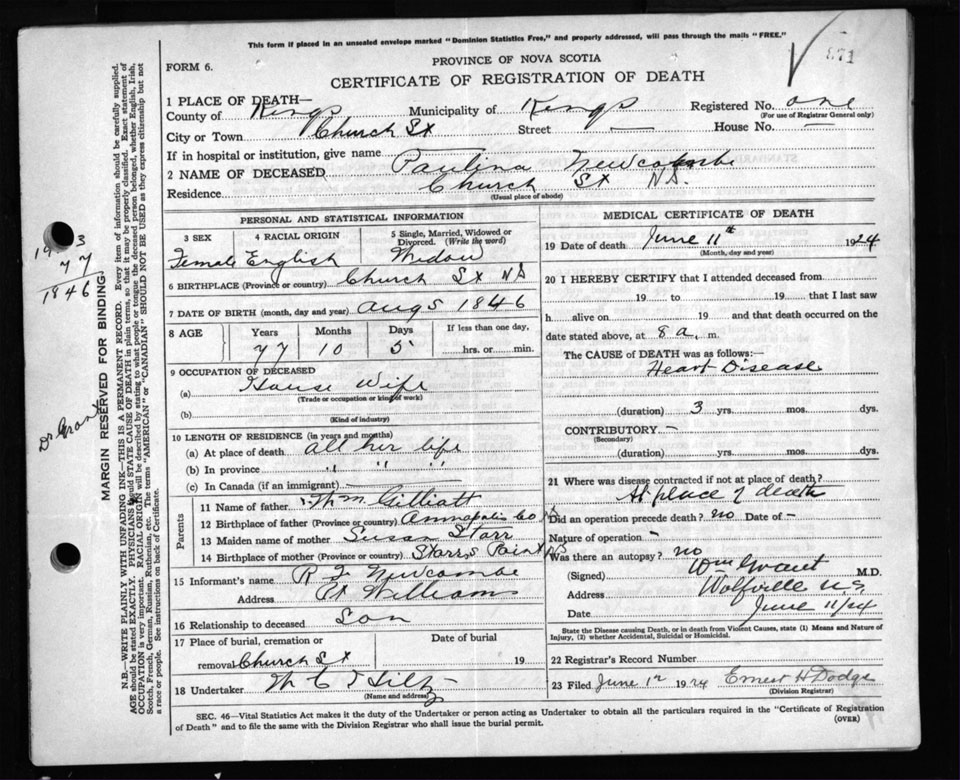 This form if placed in an unsealed envelope marked "Dominion Statistics Free," and properly addressed, will pass through the mails "FREE."
871
PROVINCE OF NOVA SCOTIA
FORM 6.
CERTIFICATE OF REGISTRATION OF DEATH
1 PLACE OF DEATH—
County of Kings Municipality of Kings Registered No. one
(For use of Registrar General only)
City or Town Church St Street — House No. —
If in hospital or institution, give name
2 NAME OF DECEASED Paulina Newcombe
Residence Church St N.S.
(Usual place of abode)
PERSONAL AND STATISTICAL INFORMATION
3 SEX 4 RACIAL ORIGIN 5 Single, Married, Widowed or Divorced. (Write the word)
Female English Widow
6 BIRTHPLACE (Province or country) Church St NS
7 DATE OF BIRTH (month, day and year) Aug 5 1846
8 AGE Years Months Days If less than one day,
77 10 5 ......hrs. or ......min.
9 OCCUPATION OF DECEASED
(a) House Wife
(Trade or occupation or kind of work)
(b)
(Kind of industry)
10 LENGTH OF RESIDENCE (in years and months)
(a) At place of death all her life
(b) In province " " "
(c) In Canada (if an immigrant)
Parents
11 Name of father Wm Gilliatt
12 Birthplace of father (Province or country) Annapolis Co NS
13 Maiden name of mother Susan Starr
14 Birthplace of mother (Province or country) Starrs Point NS
15 Informant's name R Newcombe
Address Pt Williams
16 Relationship to deceased Son
17 Place of burial, cremation or removal Church St
Date of burial
19
18 Undertaker
(Name and address)
MEDICAL CERTIFICATE OF DEATH
19 Date of death June 11th 1924
(Month, day and year)
20 I HEREBY CERTIFY that I attended deceased from
19 to 19 that I last saw
h alive on 19 and that death occurred on the
date stated above, at 8 a. m.
The CAUSE of DEATH was as follows:—
Heart Disease
(duration) 3 yrs. mos. dys.
CONTRIBUTORY —
(Secondary)
(duration) yrs. mos. dys.
21 Where was disease contracted if not at place of death?
At place of death
Did an operation precede death? no Date of -
Nature of operation -
Was there an autopsy? no
(Signed) Wm Grant M.D.
Address Wolfville N.S
Date June 11/24
State the Disease causing Death, or in death from Violent Causes, state (1) Means and Nature of Injury, (2) whether Accidental, Suicidal or Homicidal.
22 Registrar's Record Number
23 Filed June 1924 Ernest H Dodge
(Division Registrar)
SEC. 46—Vital Statistics Act makes it the duty of the Undertaker or person acting as Undertaker to obtain all the particulars required in the "Certificate of Registration
of Death" and to file the same with the Division Registrar who shall issue the burial permit.
(OVER)
77
1846
Dr Grant
MARGIN RESERVED FOR BINDING
N.B.—WRITE PLAINLY WITH UNFADING INK—THIS IS A PERMANENT RECORD. Every item of information should be carefully supplied.
AGE should be stated EXACTLY. PHYSICIANS should STATE CAUSE OF DEATH in plain terms, so that it may be properly classified. Exact statement of
OCCUPATION is very important. RACIAL ORIGIN will be described by stating to what people or tongue the deceased person belonged, whether English, Irish,
Scotch, French, German, Russian, Ruthenian, etc. The terms "AMERICAN" or "CANADIAN" SHOULD NOT BE USED as they express citizenship but not
a race or people. See instructions on back of Certificate.